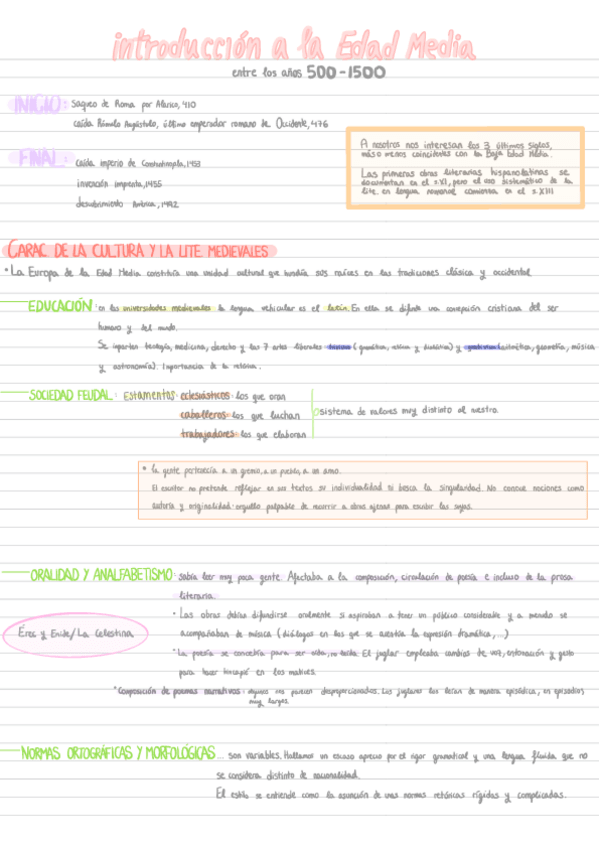 introducción a la Edad Media
entre los años 500-1500
INICIO: Saqueo de Roma por Alarico, 410
caída Rómulo Augústulo, último emperador romano de Occidente, 476
FINAL: caída imperio de Constantinopla, 1453
invención imprenta, 1455
descubrimiento América, 1492
A nosotros nos interesan los 3 últimos siglos,
más o menos coincidentes con la Baja Edad Media.
Las primeras obras literarias hispanolatinas se
documentan en el s.VI, pero el uso sistemático de la
lite. en lengua romance comienza en el s.XIII
CARAC. DE LA CULTURA Y LA LITE. MEDIEVALES
• La Europa de la Edad Media constituía una unidad cultural que hundía sus raíces en las tradiciones clásica y occidental
EDUCACIÓN: en las universidades medievales la lengua vehicular es el latín. En ella se difunde una concepción cristiana del ser
humano y del mundo.
Se imparten teología, medicina, derecho y las 7 artes liberales trivium (gramática, retórica y dialéctica) y quadrivium (aritmética, geometría, música
y astronomía). Importancia de la retórica.
SOCIEDAD FEUDAL: Estamentos: eclesiásticos: los que oran
caballeros: los que luchan
trabajadores: los que elaboran
sistema de valores muy distinto al nuestro.
• la gente pertenecía a un gremio, a un pueblo, a un amo.
El escritor no pretende reflejar en sus textos su individualidad ni busca la singularidad. No conoce nociones como
autoría y originalidad: orgullo palpable de recurrir a obras ajenas para escribir las suyas.
ORALIDAD Y ANALFABETISMO: sabía leer muy poca gente. Afectaba a la composición, circulación de poesía e incluso de la prosa
literaria.
Érec y Enide/La Celestina
• Las obras debían difundirse oralmente si aspiraban a tener un público considerable y a menudo se
acompañaban de música (diálogos en los que se acentúa la expresión dramática,...)
• La poesía se concebía para ser oída, no leída. El juglar empleaba cambios de voz, entonación y gesto
para hacer hincapié en los matices.
• Composición de poemas narrativos: algunos nos parecen desproporcionados. Los juglares los leían de manera episódica, en episodios
muy largos.
NORMAS ORTOGRÁFICAS Y MORFOLÓGICAS... son variables. Hallamos un escaso aprecio por el rigor gramatical y una lengua fluida que no
se considera distinto de nacionalidad.
El estilo se entiende como la asunción de unas normas retóricas rígidas y complicadas.